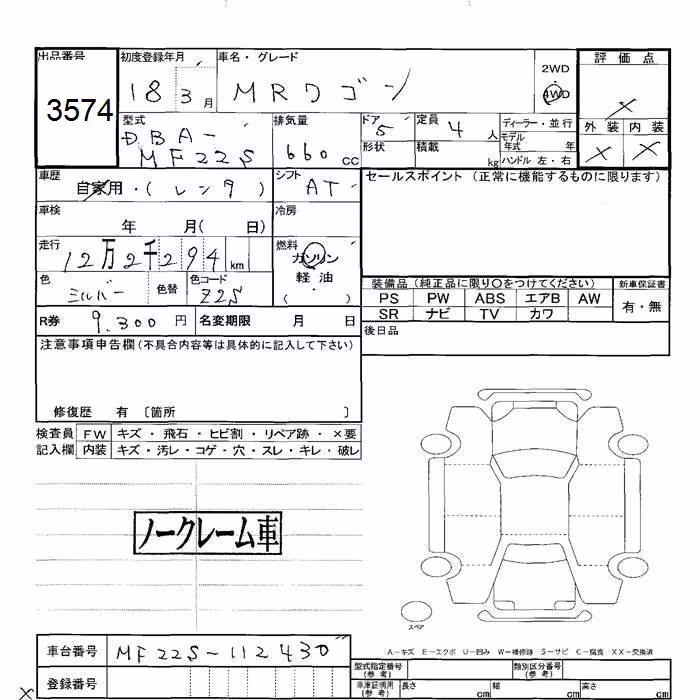 出品番号
3574
初度登録年月
18 3月
車名・グレード
MRワゴン
2WD
4WD
評価点
×
外装 内装
× ×
型式
DBA-
MF22S
排気量
660 cc
ドア
5
形状
定員
4 人
積載
kg
ディーラー・並行
モデル
年式 年
ハンドル 左・右
車歴
自家用・(レンタ)
シフト
AT
車検
年 月( 日)
冷房
走行
12万2千294 km
燃料
ガソリン
軽油
( ・ )
色
シルバー
色替
色コード
Z2S
R券
9,300 円
名変期限 月 日
セールスポイント (正常に機能するものに限ります)
装備品 (純正品に限り〇をつけてください)
新車保証書
PS PW ABS エアB AW
SR ナビ TV カワ
有・無
後日品
注意事項申告欄(不具合内容等は具体的に記入して下さい)
修復歴 有 〔箇所 〕
検査員
記入欄
FW キズ・飛石・ヒビ割・リペア跡・×要
内装 キズ・汚レ・コゲ・穴・スレ・キレ・破レ
ノークレーム車
スペア
A-キズ E-エクボ U-凹み W-補修跡 S-サビ C-腐食 XX-交換済
車台番号
MF22S-112430
登録番号
型式指定番号
(参考)
類別区分番号
(参考)
車庫証明用
(参考)
長さ cm
幅 cm
高さ cm
×